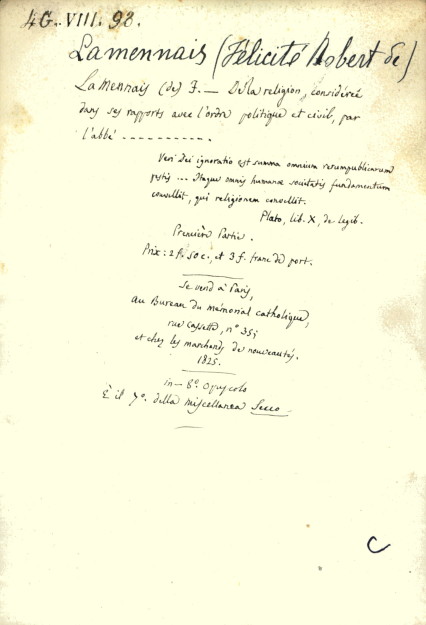 4G. VIII. 98.
Lamennais (Félicité Robert de)
La Mennais (de) F. — De la religion, considérée
dans ses rapports avec l'ordre politique et civil, par
l'abbé -----------.
Veri Dei ignoratio est summa omnium rerumpublicarum
pestis ... Itaque omnis humanæ societatis fundamentum
convellit, qui religionem convellit.
Plato, lib. X, de legib.
Première Partie.
Prix: 2 f. 50 c., et 3 f. franc de port.
Se vend à Paris,
au Bureau du mémorial catholique,
rue Cassette, n° 35;
et chez les marchands de nouveautés.
1825.
in-8° Opuscolo
È il 7°. della Miscellanea Secco
C